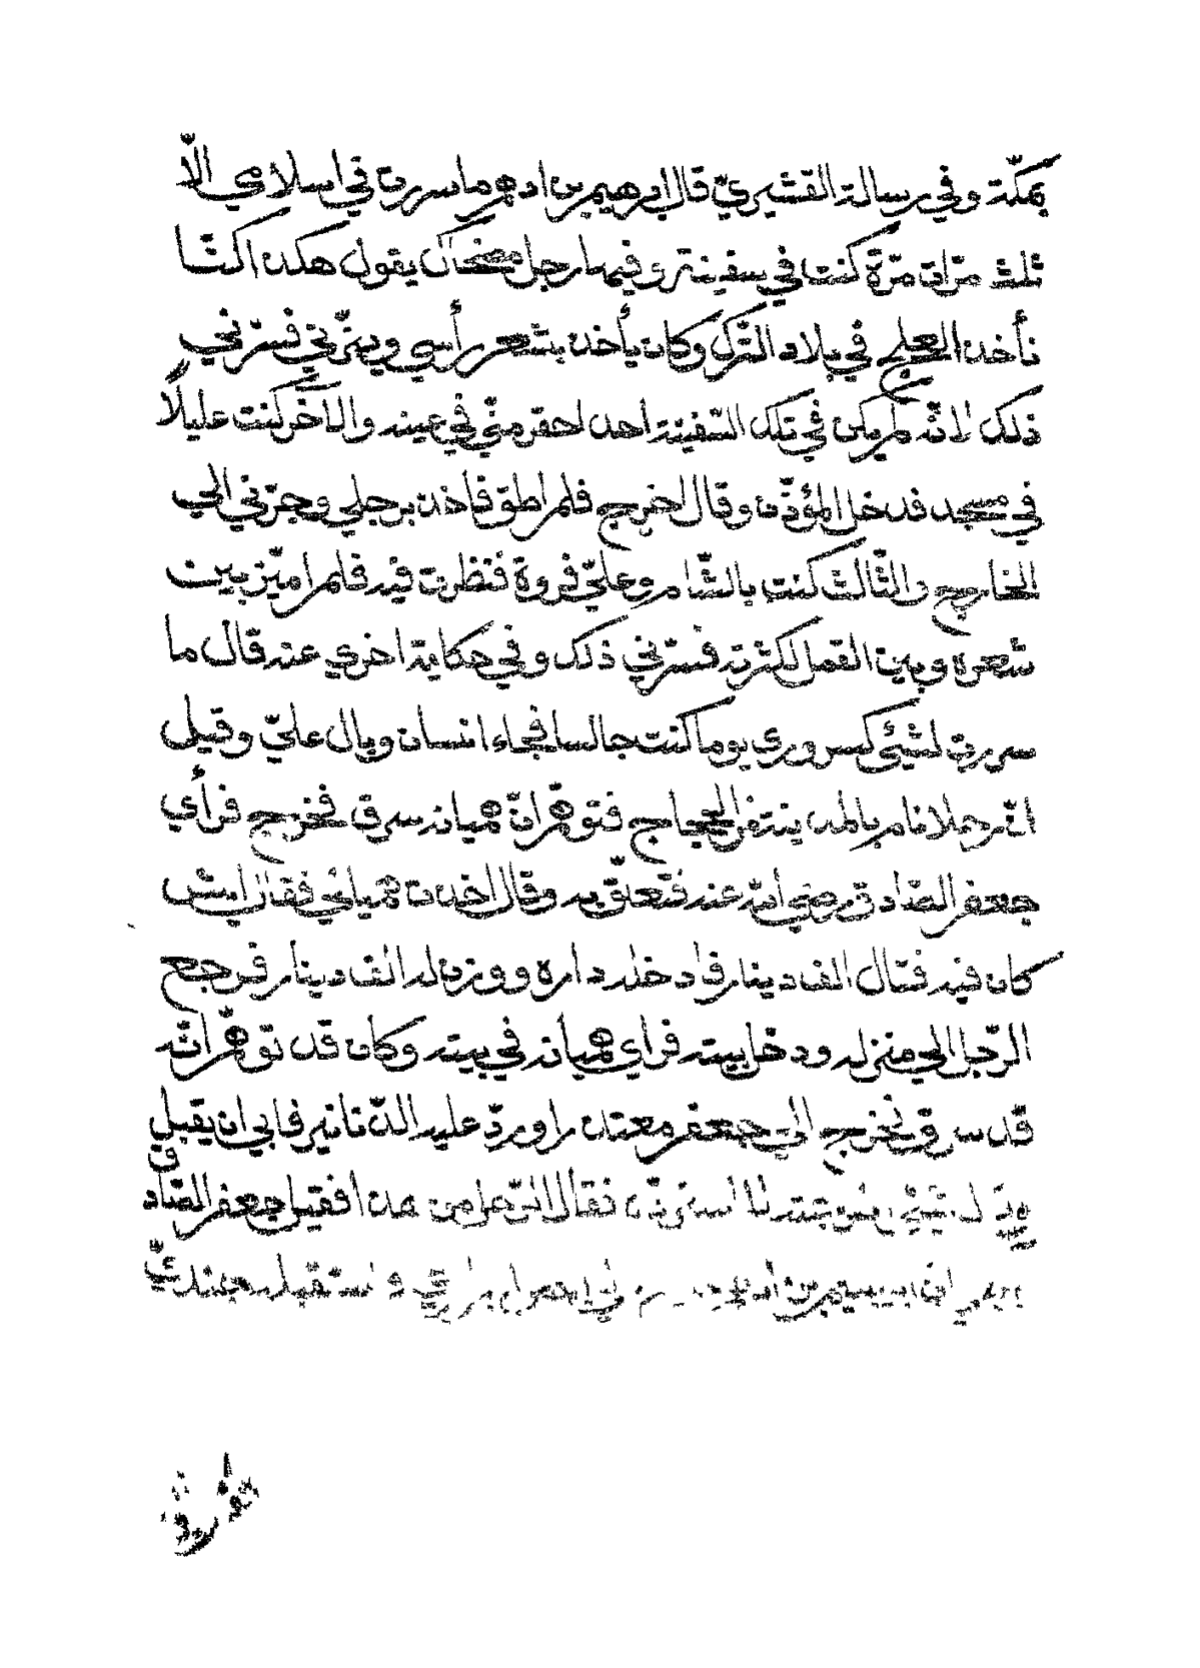 بمكّة وفي رسالة القشيريّ قال ابرهيم بن ادهم ما سررت في اسلامي الّا
ثلث مرّات مرّة كنت في سفينة وفيها رجل مضحاك يقول هكذا كنّا
نأخذ العلج في بلاد التّرك وكان يأخذ بشعر رأسي ويهزّني فسرّني
ذلك لانّه لم يكن في تلك السّفينة احد احقر منّي في عينه والآخر كنت عليلًا
في مسجد فدخل المؤذّن وقال اخرج فلم اطق فأخذ برجلي وجرّني الي
الخارج والثّالث كنت بالشّام وعليّ فروة فنظرت فيه فلم اميّز بين
شعره وبين القمل لكثرته فسرّني ذلك وفي حكاية اخري عنه قال ما
سررت لشيئ كسروري يوما كنت جالسا فجاء انسان وبال عليّ وقيل
انّ رجلا نام بالمدينة من الحجاج فتوهّم انّ هميانه سرق فخرج فرأي
جعفر الصّادق رضي الله عنه فتعلّق به وقال اخذت همياني فقال ايش
كان فيه فقال الف دينار فادخله داره ووزن له الف دينار فرجع
الرّجل الي منزله ودخل بيته فرأي هميانه في بيته وكان قد توهّم انّه
قد سرق فخرج الي جعفر معتذرا وردّ عليه الدّنانير فابي ان يقبل
فقال الرّجل من هذا فقيل جعفر الصّادق
واستقبله جنديّ